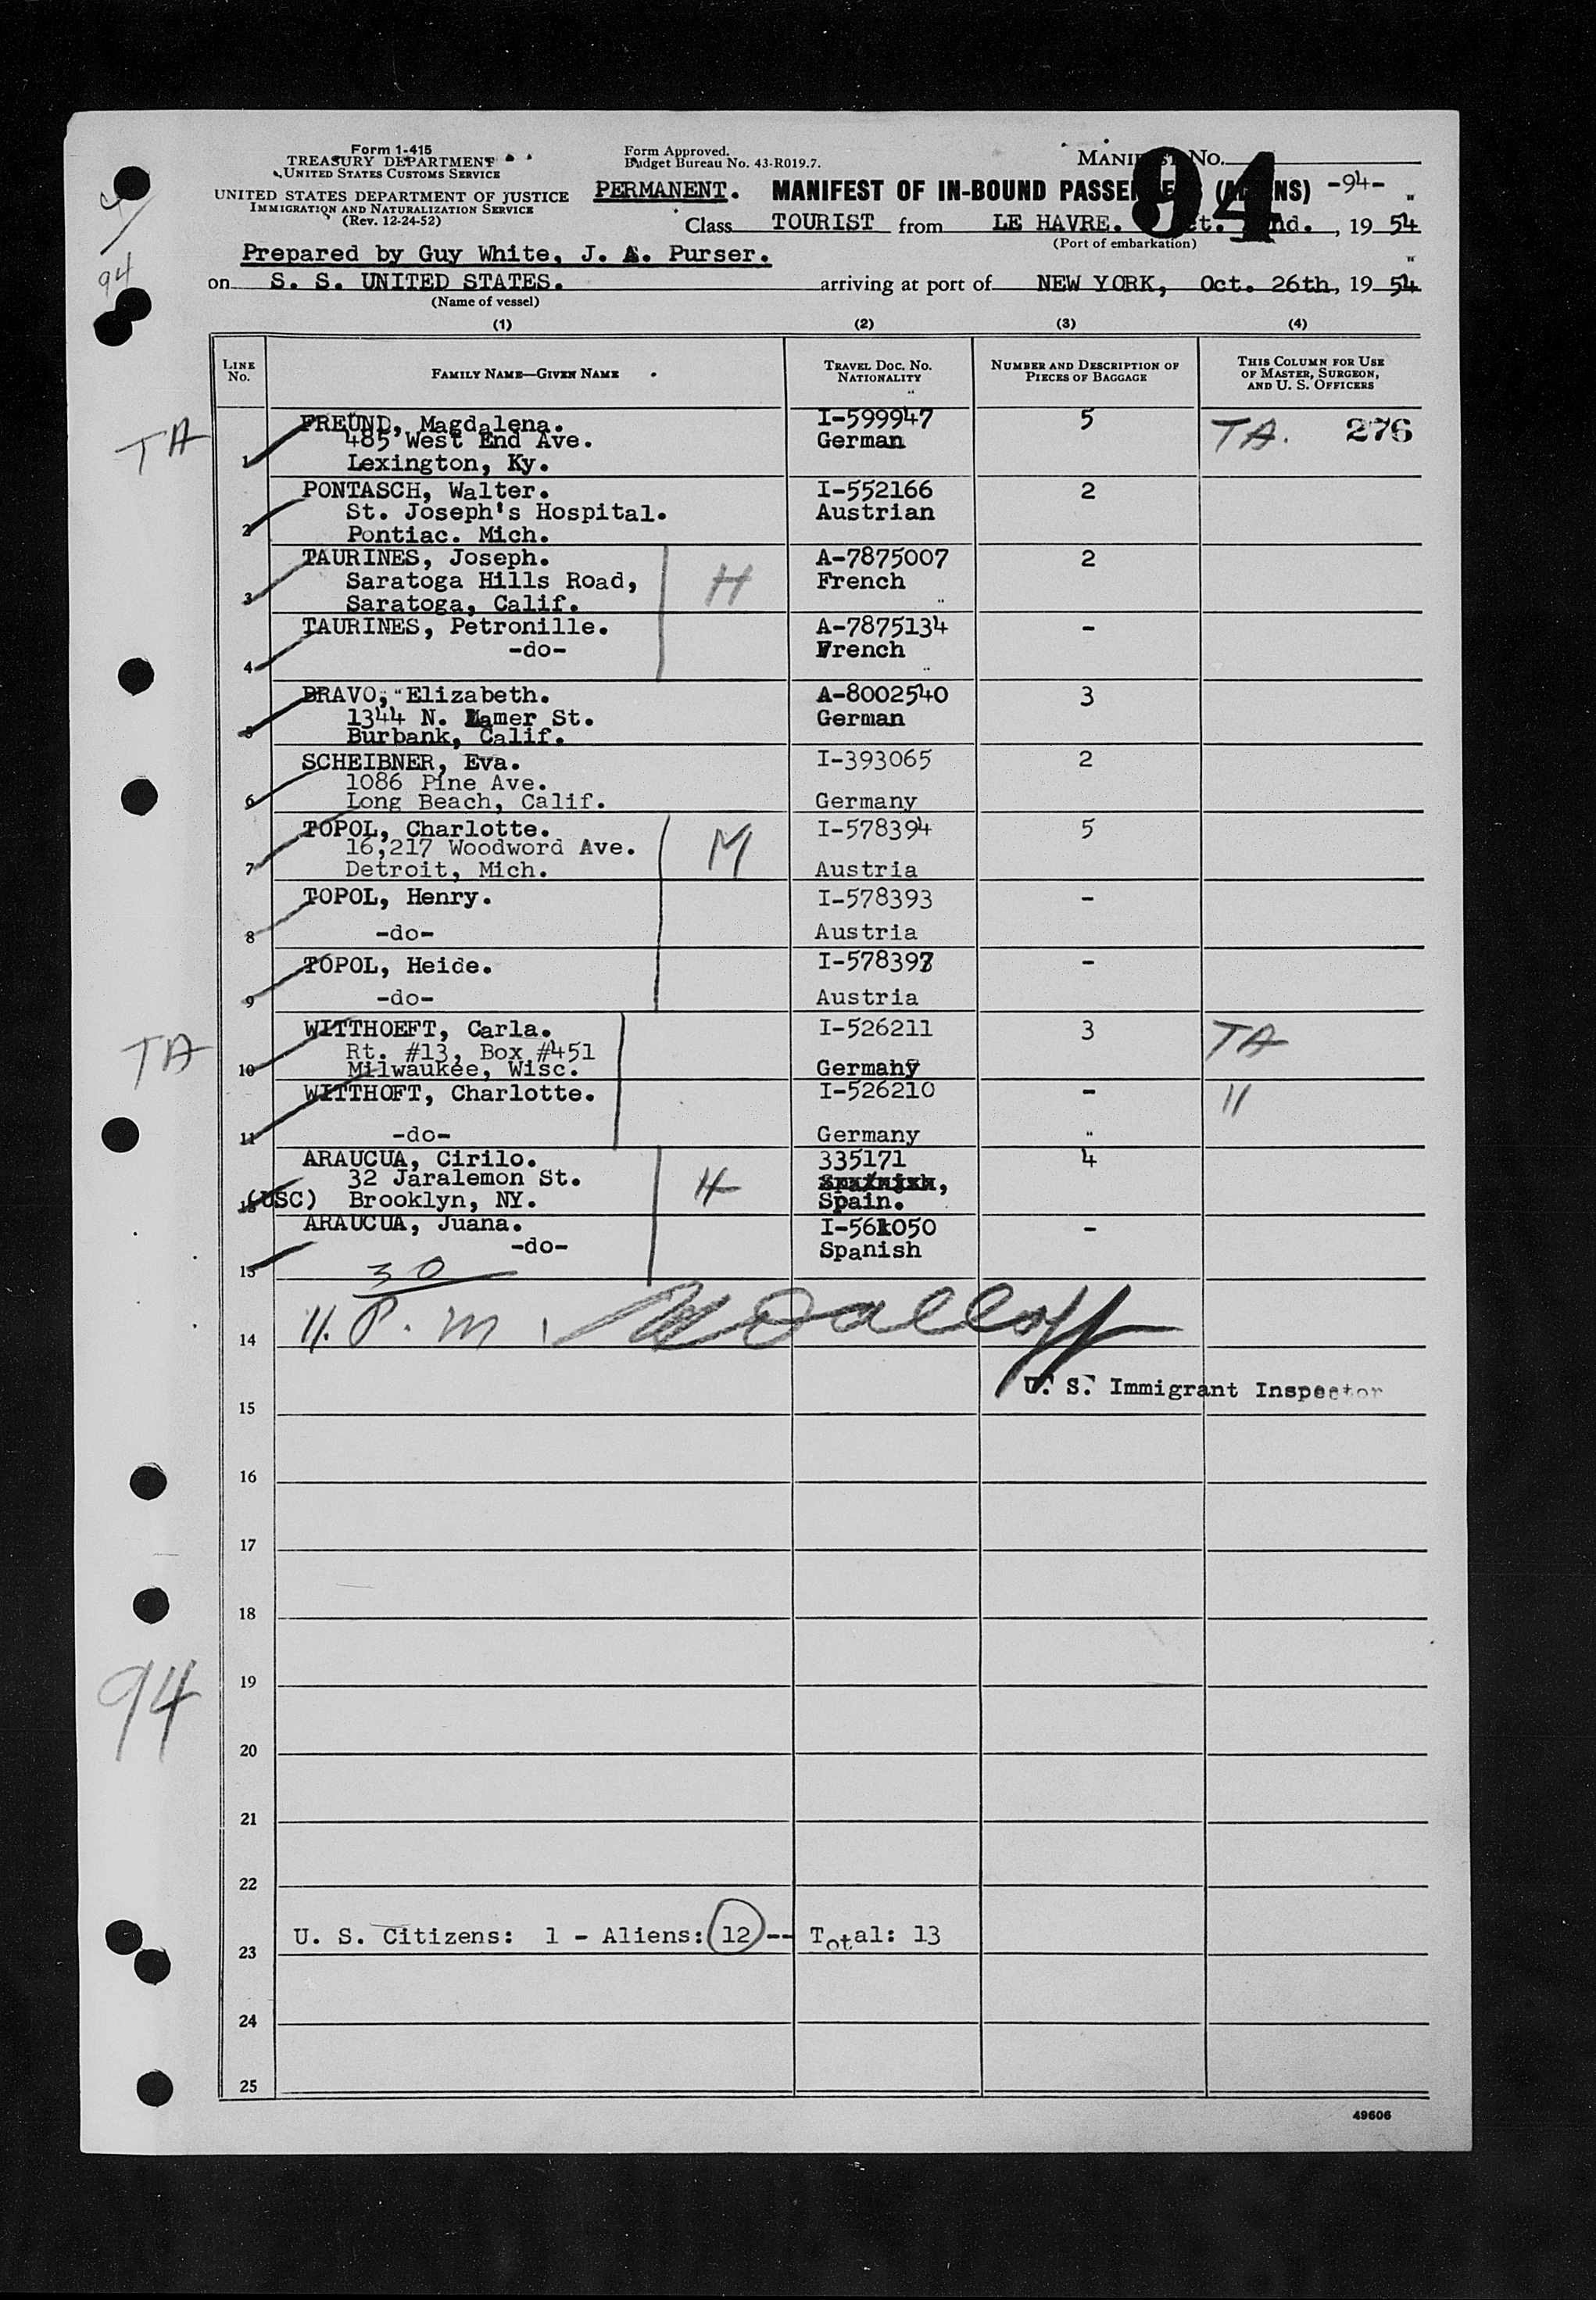 Form I-415
TREASURY DEPARTMENT
UNITED STATES CUSTOMS SERVICE
UNITED STATES DEPARTMENT OF JUSTICE
IMMIGRATION AND NATURALIZATION SERVICE
(Rev. 12-24-52)
Form Approved.
Budget Bureau No. 43-R019.7.
MANIFEST No.
94
PERMANENT. MANIFEST OF IN-BOUND PASSENGERS (ALIENS) -94-
Class TOURIST from LE HAVRE. nd., 19 54
(Port of embarkation)
Prepared by Guy White, J. A. Purser.
94
on S. S. UNITED STATES. arriving at port of NEW YORK, Oct. 26th, 19 54
(Name of vessel)
(1) (2) (3) (4)
LINE No. FAMILY NAME—GIVEN NAME TRAVEL DOC. NO. NATIONALITY NUMBER AND DESCRIPTION OF PIECES OF BAGGAGE THIS COLUMN FOR USE OF MASTER, SURGEON, AND U. S. OFFICERS
FREUND, Magdalena. I-599947 5 TA. 276
TA 485 West End Ave. German
1 Lexington, Ky.
PONTASCH, Walter. I-552166 2
2 St. Joseph's Hospital. Austrian
Pontiac. Mich.
TAURINES, Joseph. A-7875007 2
Saratoga Hills Road, H French
3 Saratoga, Calif.
TAURINES, Petronille. A-7875134 -
4 -do- French
BRAVO, Elizabeth. A-8002540 3
1344 N. Lamer St. German
5 Burbank, Calif.
SCHEIBNER, Eva. I-393065 2
1086 Pine Ave.
6 Long Beach, Calif. Germany
TOPOL, Charlotte. I-578394 5
16,217 Woodword Ave. M
7 Detroit, Mich. Austria
TOPOL, Henry. I-578393 -
8 -do- Austria
TOPOL, Heide. I-578397 -
9 -do- Austria
WITTHOEFT, Carla. I-526211 3 TA
TA Rt. #13, Box #451
10 Milwaukee, Wisc. Germany
WITTHOFT, Charlotte. I-526210 - "
11 -do- Germany
ARAUCUA, Cirilo. 335171 4
32 Jaralemon St. H Spanish,
12 (USC) Brooklyn, NY. Spain.
ARAUCUA, Juana. I-561050 -
13 -do- Spanish
30
14 11. P.m.
U. S. Immigrant Inspector
15
16
17
18
19
94
20
21
22
23 U. S. Citizens: 1 - Aliens: 12 -- Total: 13
24
25
49606